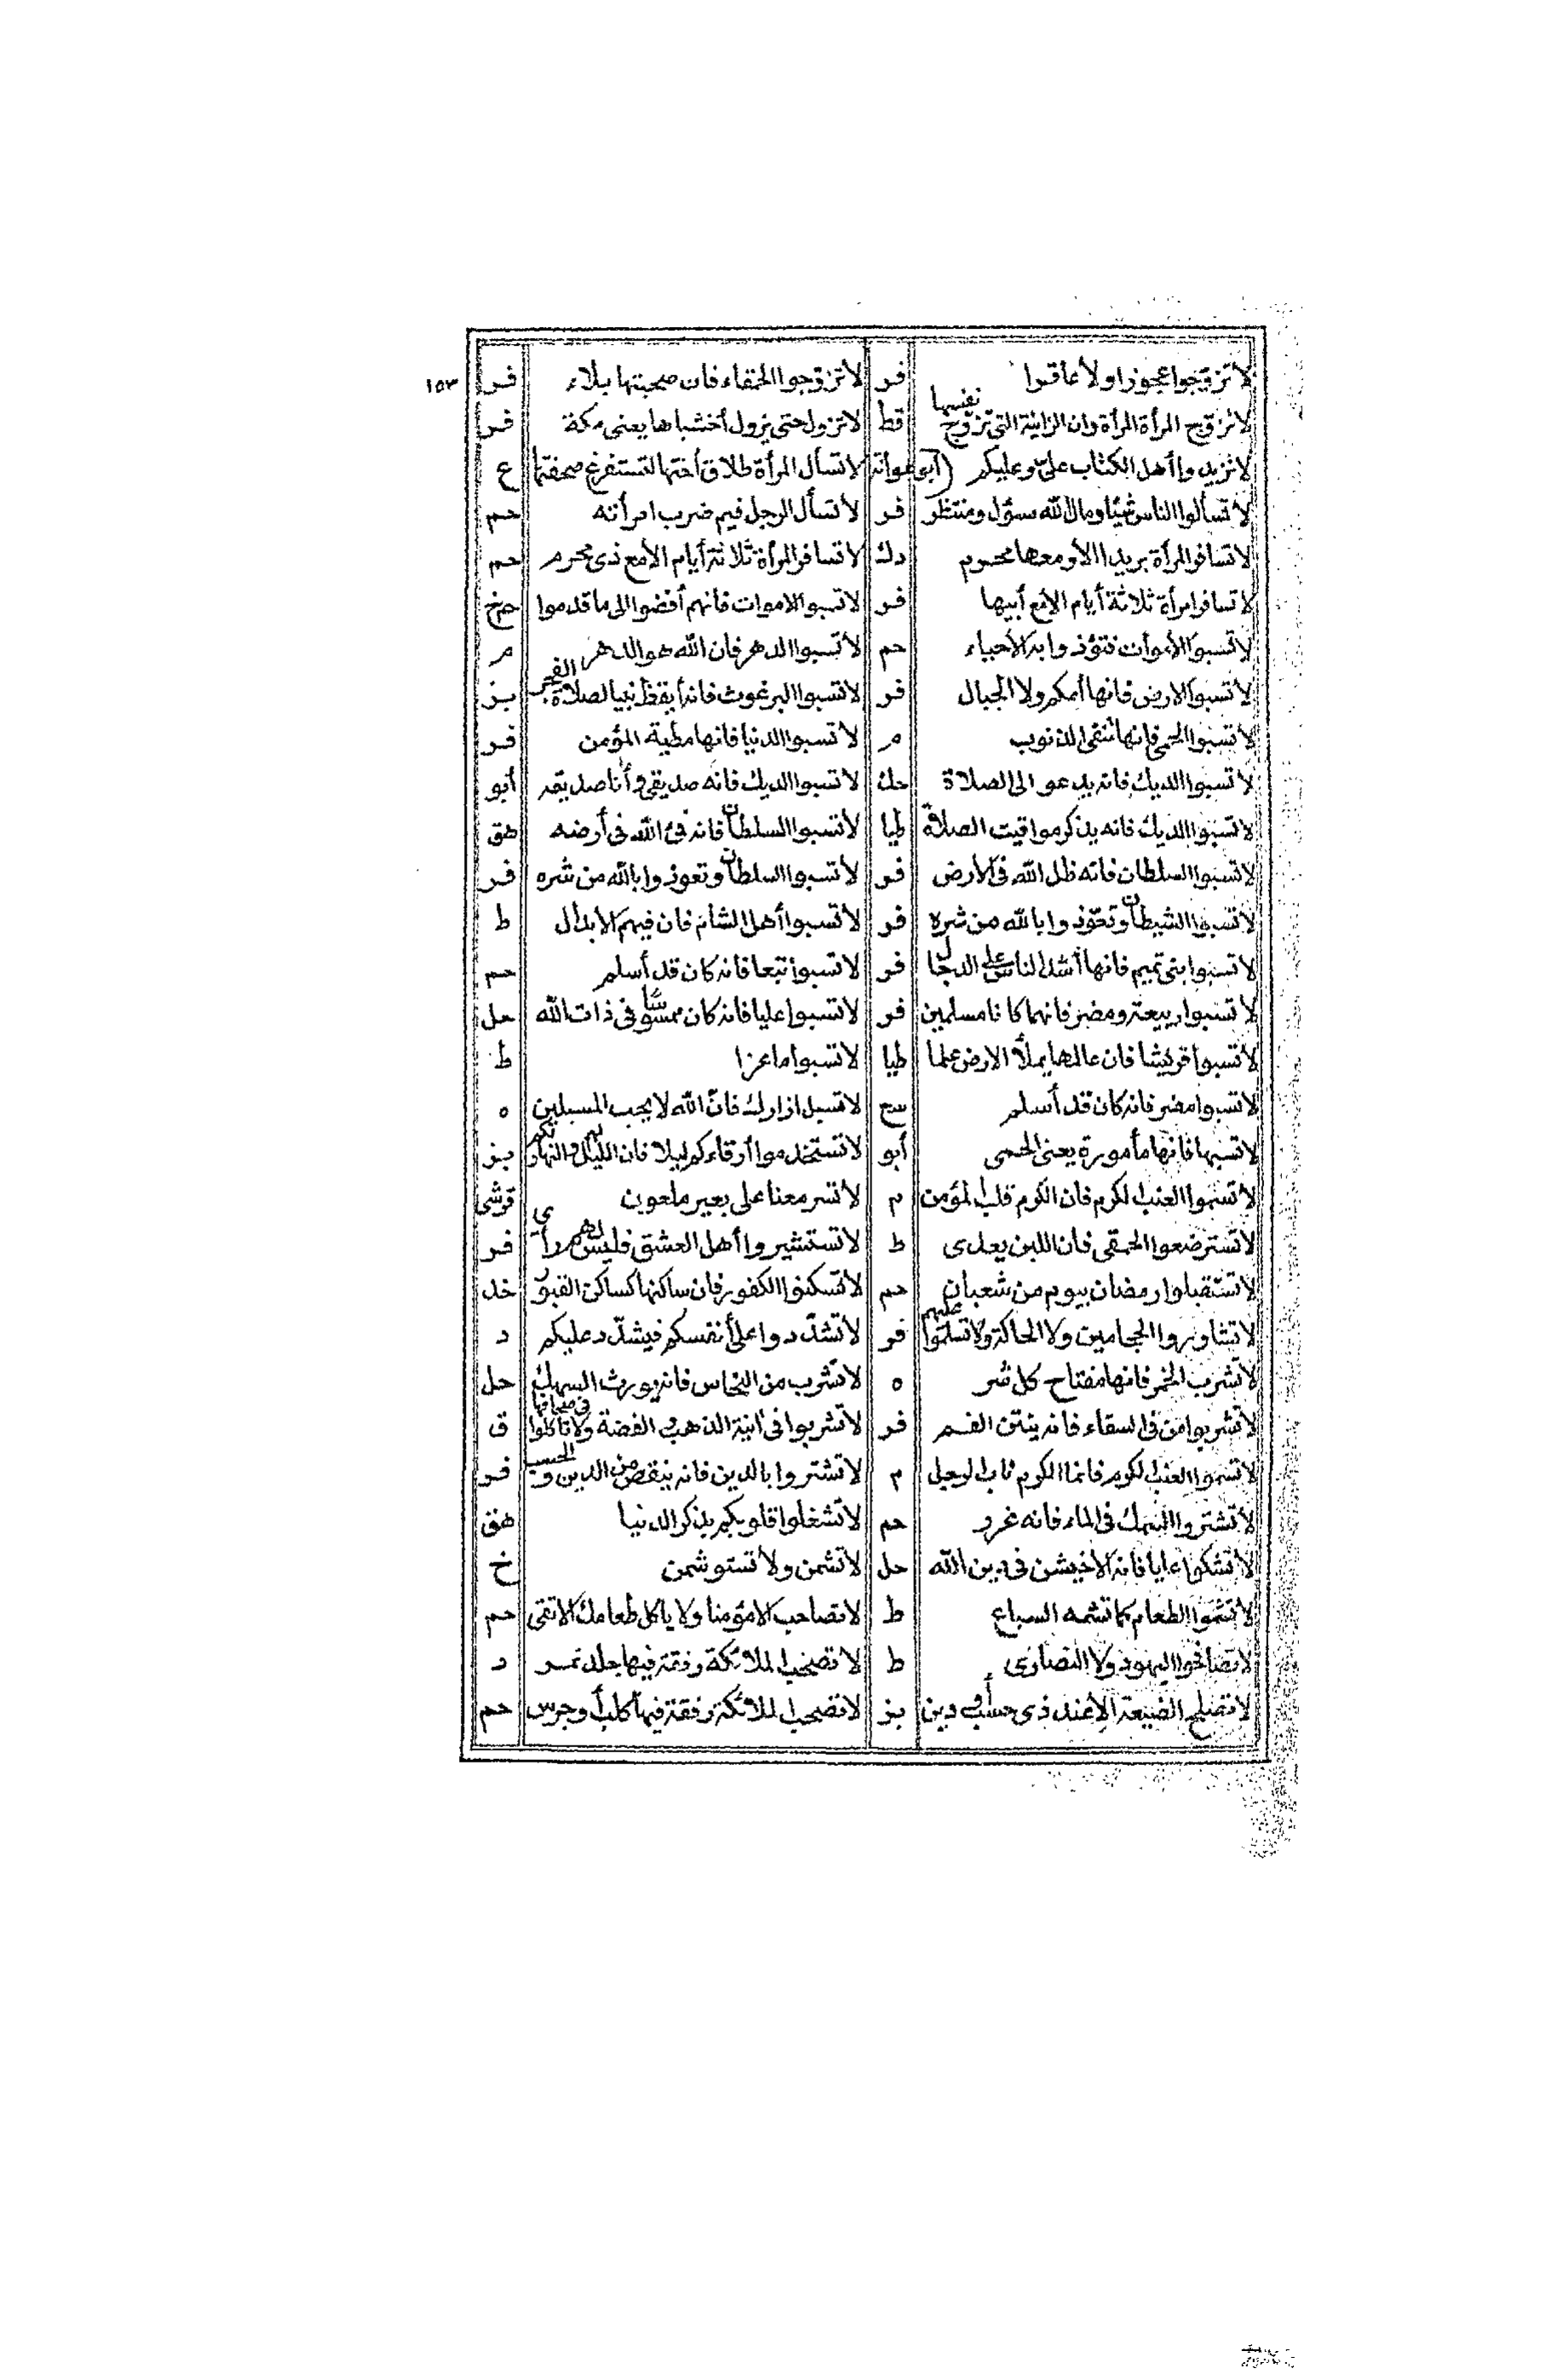 ١٥٣
لا تزوجوا عجوزا ولا عاقرا فر لا تزوجوا الحمقاء فان صحبتها بلاء فر
لا تزوج المرأة المرأة وان الزانية التى تزوج نفسها قط لا تزول حتى يزول أخشباها يعنى مكة فر
لا تزيدوا أهل الكتاب على وعليكم (أبو عوانة لا تسأل المرأة طلاق أختها لتستفرغ صحفتها ع
لا تسألوا الناس شيئا ومال الله سؤل ومنتظر فر لا تسأل الرجل فيم ضرب امرأته حم
لا تسافر المرأة بريدا الا ومعها محرم دك لا تسافر المرأة ثلاثة أيام الا مع ذى محرم حم
لا تسافر امرأة ثلاثة أيام الا مع أبيها فر لا تسبوا الاموات فانهم أفضوا الى ما قدموا حم خ
لا تسبوا الأموات فتؤذوا به الأحياء حم لا تسبوا الدهر فان الله هو الدهر م
لا تسبوا الارض فانها أمكم ولا الجبال فر لا تسبوا البرغوث فانه أيقظ نبيا لصلاة الفجر بز
لا تسبوا الحمى فانها تنقى الذنوب م لا تسبوا الدنيا فانها مطية المؤمن فر
لا تسبوا الديك فانه يدعو الى الصلاة حك لا تسبوا الديك فانه صديقى وأنا صديقه أبو
لا تسبوا الديك فانه يذكر مواقيت الصلاة طيا لا تسبوا السلطان فانه فئ الله فى أرضه هق
لا تسبوا السلطان فانه ظل الله فى الأرض فر لا تسبوا السلطان وتعوذوا بالله من شره فر
لا تسبوا الشيطان وتعوذوا بالله من شره فر لا تسبوا أهل الشام فان فيهم الأبدال ط
لا تسبوا بنى تميم فانها أشد الناس على الدجال فر لا تسبوا تبعا فانه كان قد أسلم حم
لا تسبوا ربيعة ومضر فانهما كانا مسلمين فر لا تسبوا عليا فانه كان ممسوسا فى ذات الله حل
لا تسبوا قريشا فان عالمها يملأ الارض علما طيا لا تسبوا ماعزا ط
لا تسبوا مضر فانه كان قد أسلم سع لا تسبل ازارك فان الله لا يحب المسبلين ه
لا تسبها فانها مأمورة يعنى الحمى أبو لا تستخدموا أرقاءكم ليلا فان الليل لهم والنهار لكم بز
لا تسموا العنب الكرم فان الكرم قلب المؤمن م لا تسر معنا على بعير ملعون قرشى
لا تسترضعوا الحمقى فان اللبن يعدى ط لا تستشيروا أهل العشق فليس لهم رأى فر
لا تستقبلوا رمضان بيوم من شعبان حم لا تسكنوا الكفور فان ساكنها كساكن القبور خد
لا تشاوروا الحجامين ولا الحاكة ولا تسلموا عليهم فر لا تشددوا على أنفسكم فيشدد عليكم د
لا تشرب الخمر فانها مفتاح كل شر ه لا تشرب من النحاس فانه يورث السهك حل
لا تشربوا من فى السقاء فانه ينتن الفم فر لا تشربوا فى آنية الذهب والفضة ولا تأكلوا فى صحافها ق
لا تسموا العنب الكرم فانما الكرم الرجل م لا تشتروا بالدين فانه ينقص من الدين والحسب فر
لا تشتروا السمك فى الماء فانه غرر حم لا تشغلوا قلوبكم بذكر الدنيا هق
لا تشكوا عليا فانه الأخيشن فى دين الله حل لا تشمن ولا تستوشمن خ
لا تشموا الطعام كما تشمه السباع ط لا تصاحب الا مؤمنا ولا يأكل طعامك الا تقى حم
لا تصافحوا اليهود ولا النصارى ط لا تصحب الملائكة رفقة فيها جلد نمر د
لا تصلح الضيعة الا عند ذى حسب أو دين بز لا تصحب الملائكة رفقة فيها كلب أو جرس حم